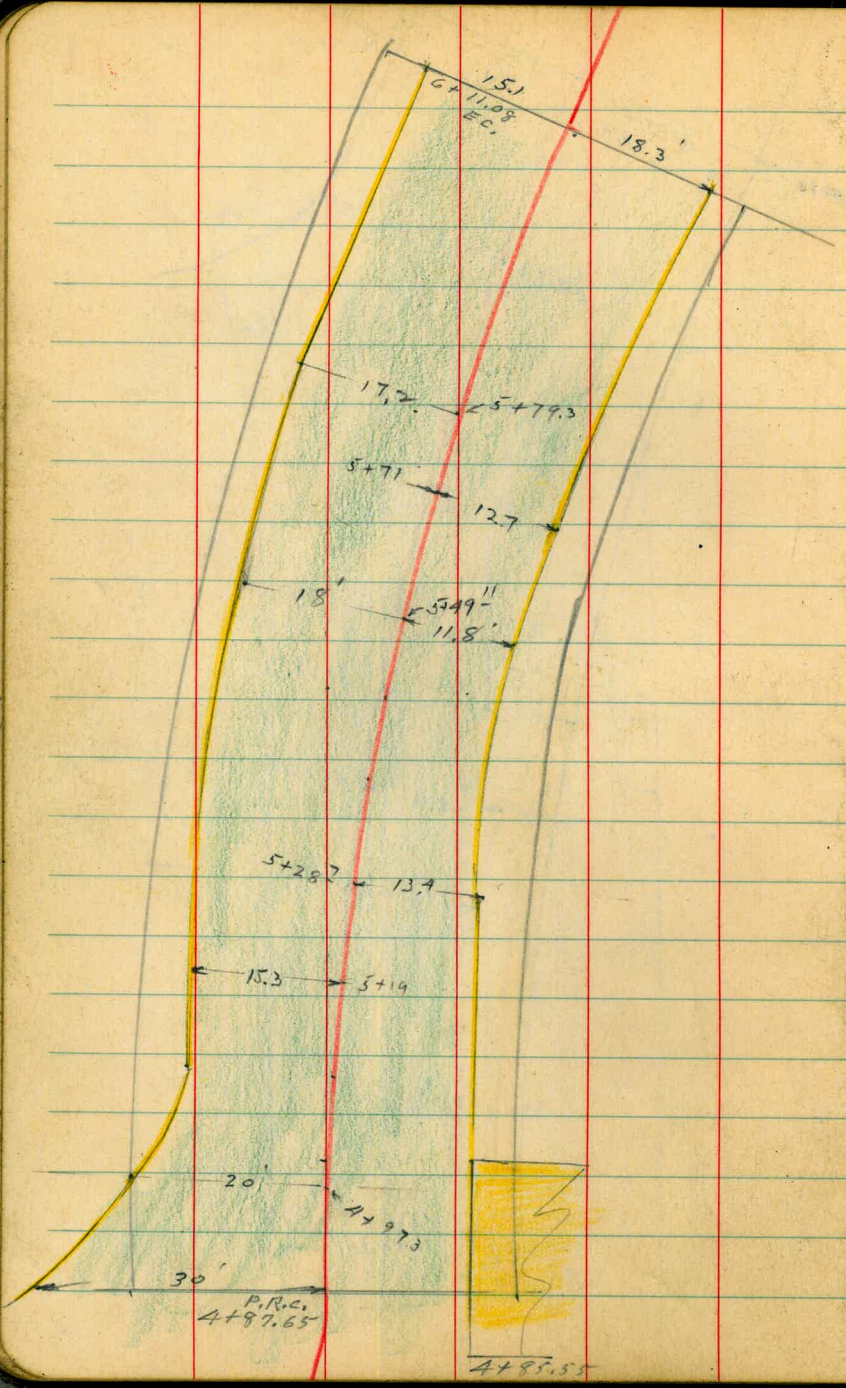 15.1
6+11.08
E.C.
18.3'
17.2
5+79.3
5+71
12.7
18'
5+49
11.8'
5+28
13.4
15.3
5+14
20'
4+97.3
30'
P.R.C.
4+87.65
4+85.55